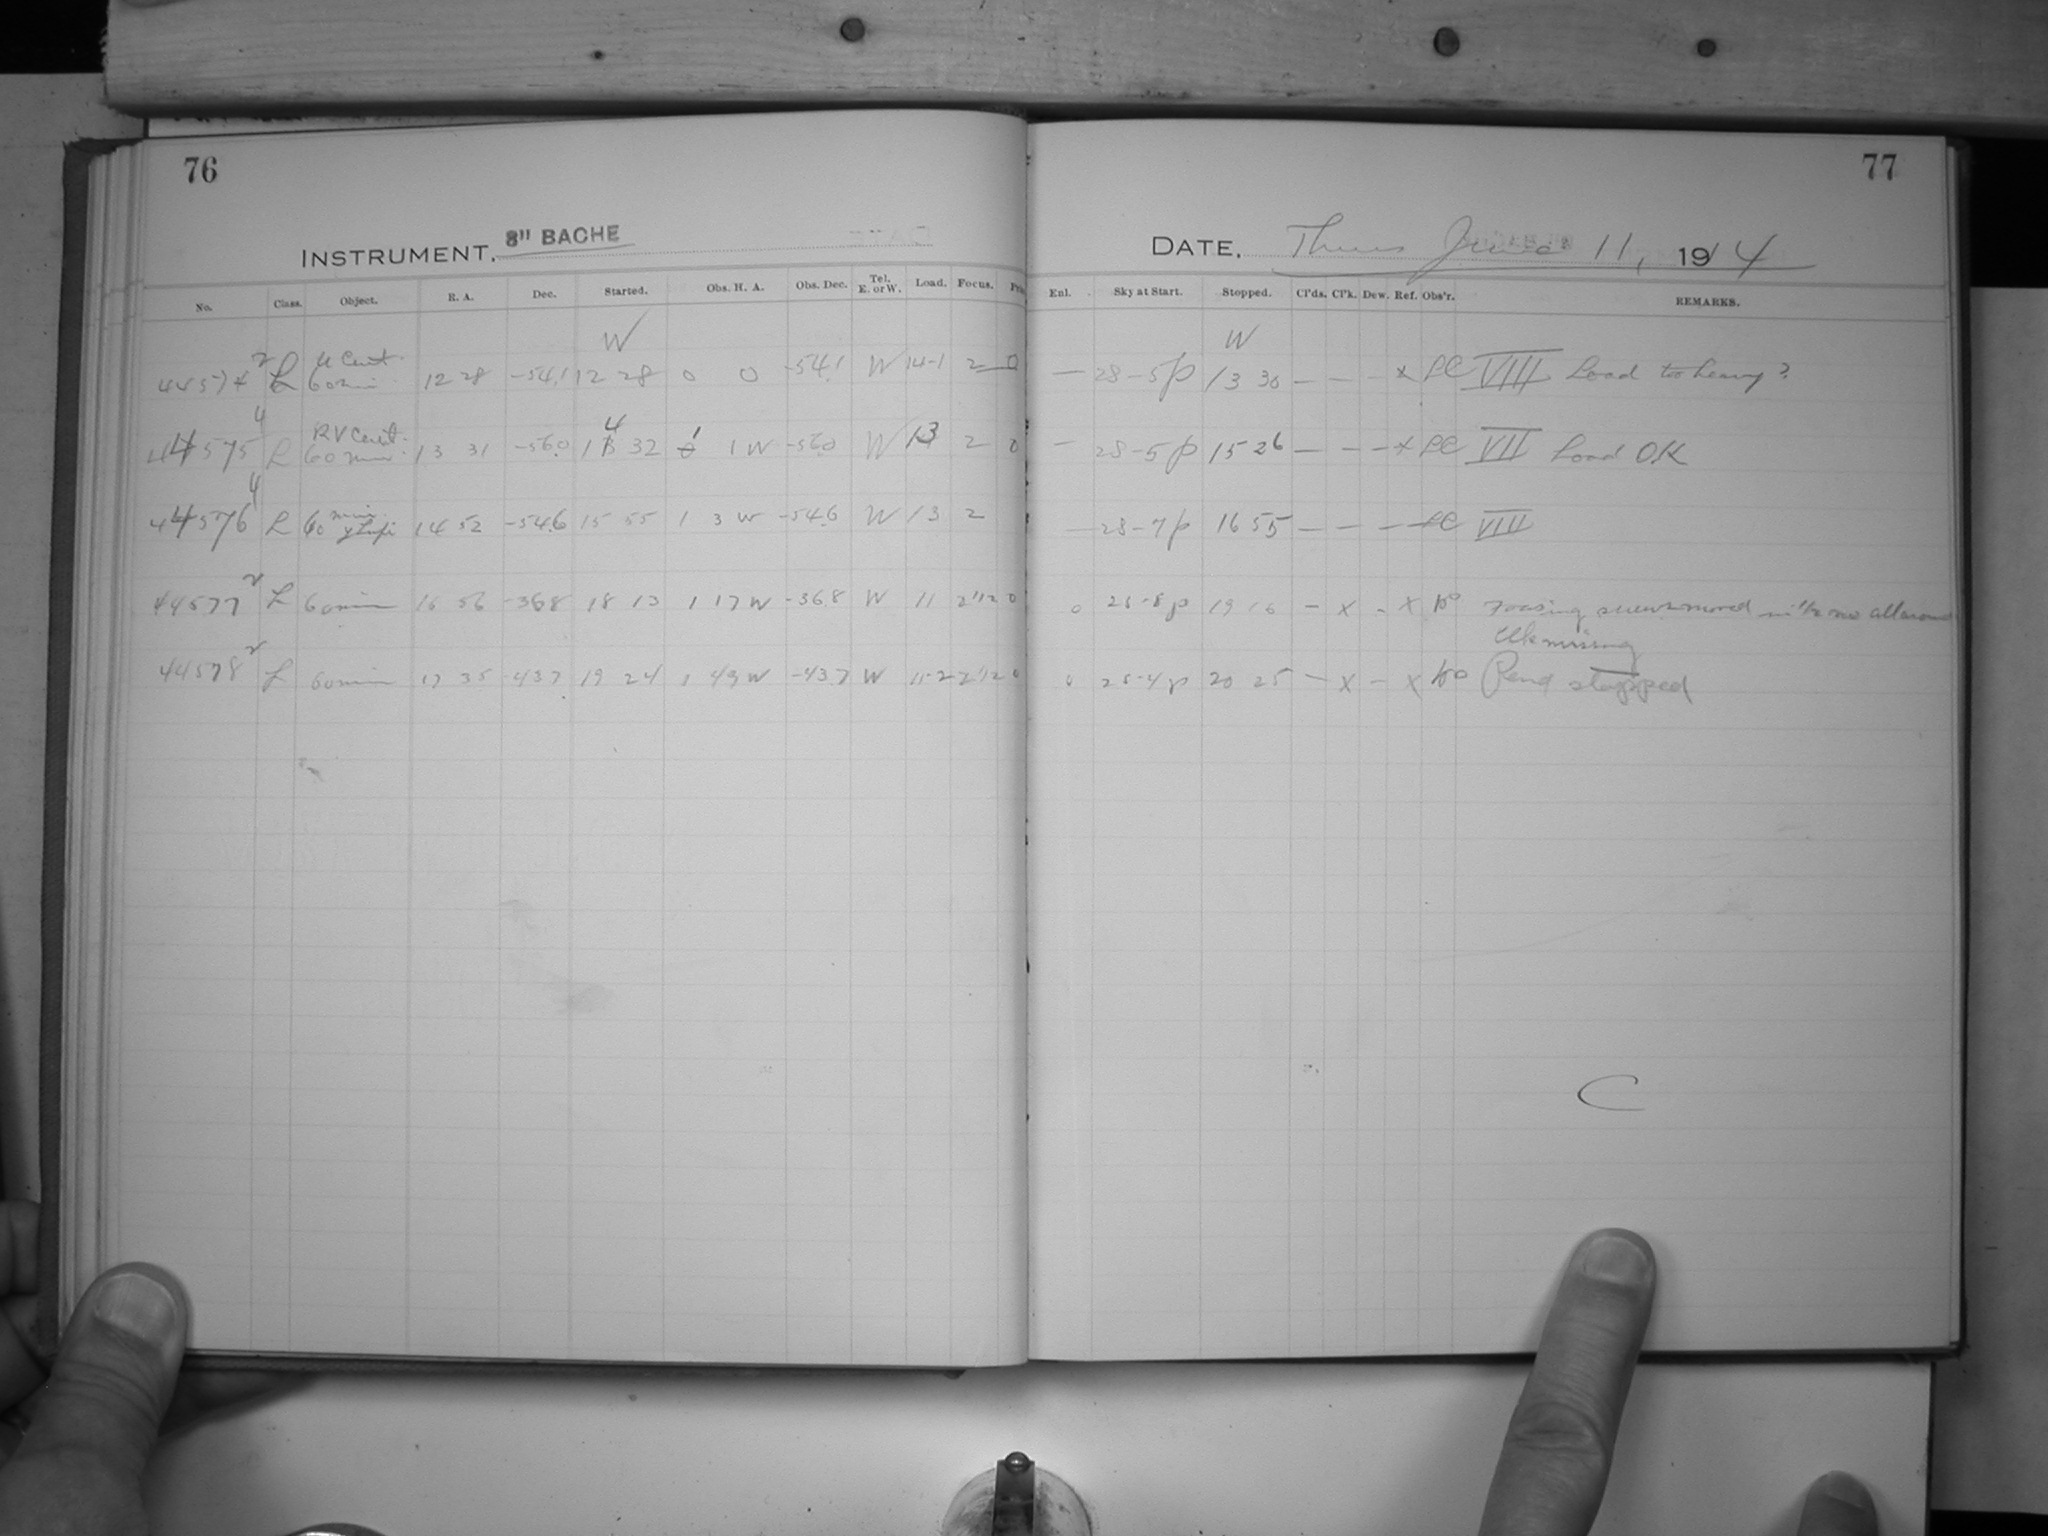 76
77
INSTRUMENT, 8" BACHE
DATE, Thurs June 11, 1914
No. Class. Object. R. A. Dec. Started. Obs. H. A. Obs. Dec. Tel. E. or W. Load. Focus.
Enl. Sky at Start. Stopped. Cl'ds. Cl'k. Dew. Ref. Obs'r. REMARKS.
W W
44574 2 L u Cent. 60 min 12 28 -54.1 12 28 0 0 -54.1 W 14-1 2 0 — 28-5p 13 30 — — — x LC VIII Load too heavy?
44575 4 L RV Cent. 60 min. 13 31 -56.0 14 32 1 1 W -56.0 W 13 2 0 — 28-5p 15 26 — — — x LC VII Load OK
44576 4 L 60 min y Lupi 14 52 -54.6 15 55 1 3 W -54.6 W 13 2 — 28-7p 16 55 — — — LC VIII
44577 2 L 60 min 16 56 -36.8 18 13 1 17 W -36.8 W 11 2 1/2 0 0 25-8p 19 16 — x - x Focusing screw moved
Clk missing
44578 2 L 60 min 17 35 -43.7 19 24 1 49 W -43.7 W 11-2 2 1/2 0 0 25-4p 20 25 — x — x Pend stopped
C